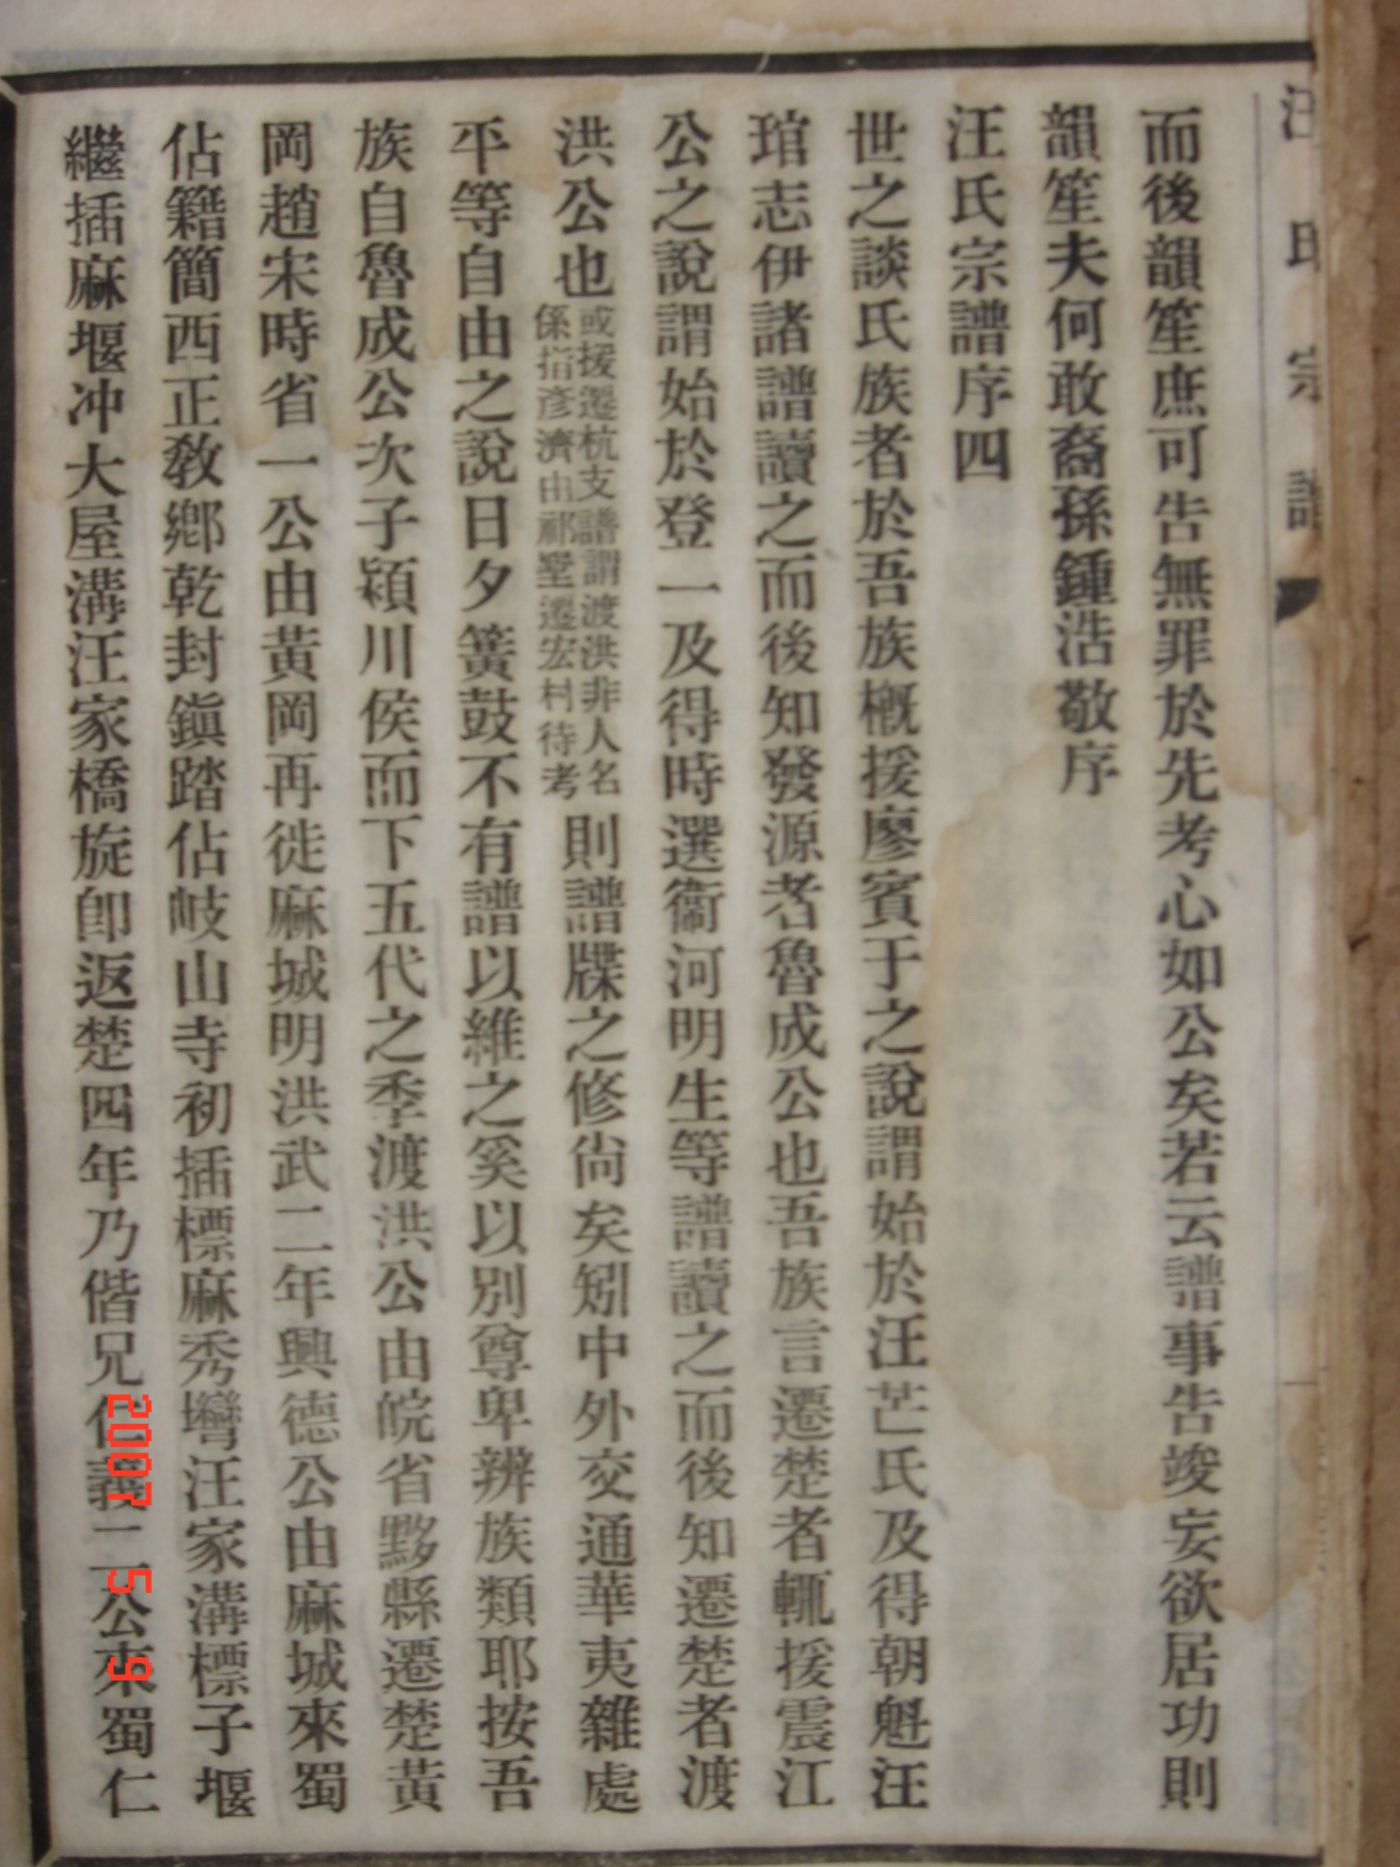 汪氏宗譜
而後韻笙庶可告無罪於先考心如公矣若云譜事告竣妄欲居功則
韻笙夫何敢裔孫鍾浩敬序
汪氏宗譜序四
世之談氏族者於吾族概援廖賓于之說謂始於汪芒氏及得朝魁汪
琯志伊諸譜讀之而後知發源者魯成公也吾族言遷楚者輒援震江
公之說謂始於登一及得時選衞河明生等譜讀之而後知遷楚者渡
洪公也或援遷杭支譜謂渡洪非人名係指彥濟由祁墅遷宏村待考則譜牒之修尙矣矧中外交通華夷雜處
平等自由之說日夕簧鼓不有譜以維之奚以別尊卑辨族類耶按吾
族自魯成公次子潁川侯而下五代之季渡洪公由皖省黟縣遷楚黃
岡趙宋時省一公由黃岡再徙麻城明洪武二年興德公由麻城來蜀
佔籍簡西正敎鄕乾封鎭踏佔岐山寺初插標麻秀壪汪家溝標子堰
繼插麻堰冲大屋溝汪家橋旋卽返楚四年乃偕兄仁義二公來蜀仁
2007 5 9